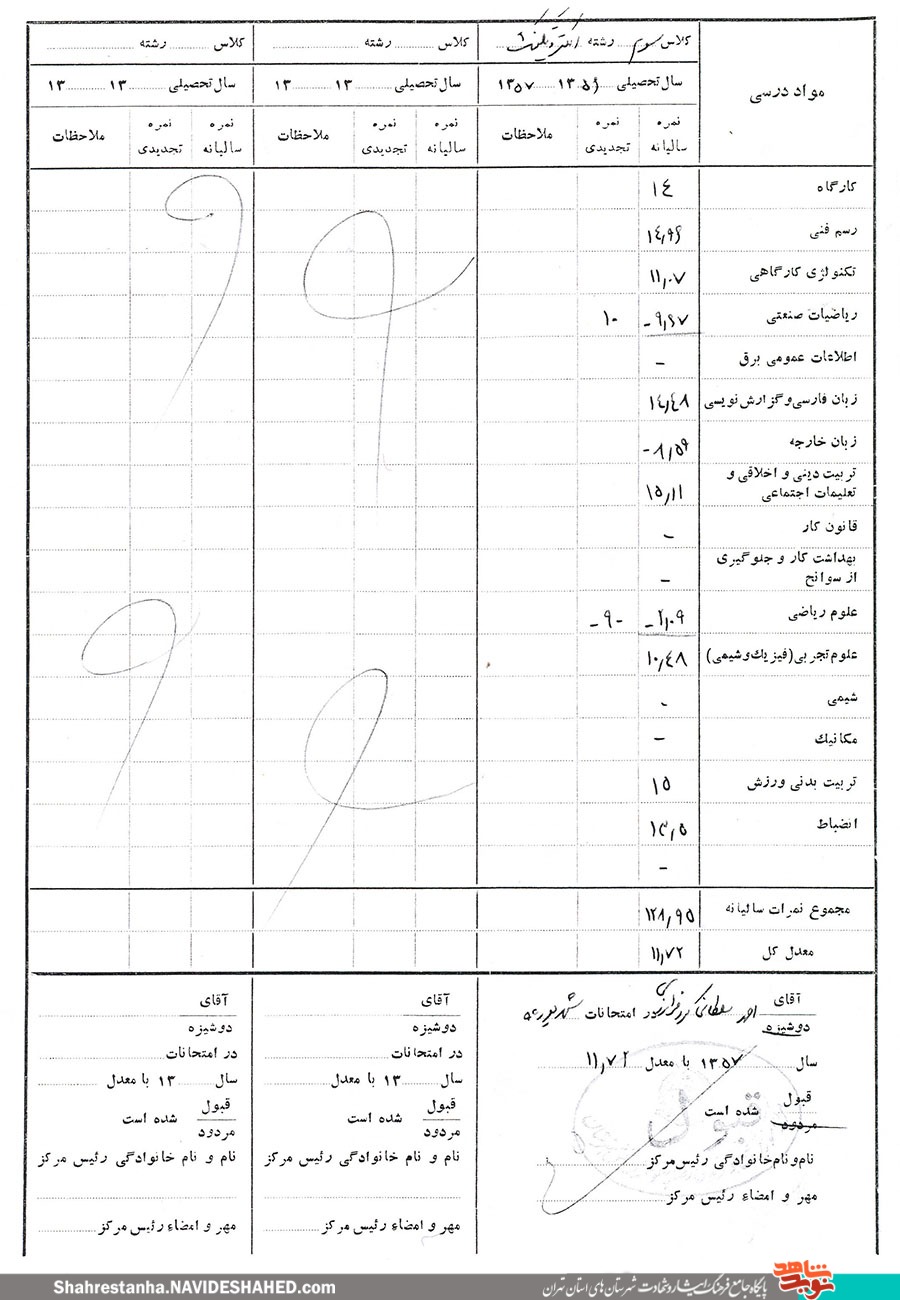 مواد درسی
کلاس سوم رشته
کلاس ........ رشته ........
کلاس ........ رشته ........
سال تحصیلی ۱۳۵۶ ۱۳۵۷
سال تحصیلی ۱۳ ........ ۱۳
سال تحصیلی ۱۳ ........ ۱۳
نمره سالیانه نمره تجدیدی ملاحظات
نمره سالیانه نمره تجدیدی ملاحظات
نمره سالیانه نمره تجدیدی ملاحظات
کارگاه ۱۴
رسم فنی ۱۴,۹۶
تکنولژی کارگاهی ۱۱,۰۷
ریاضیات صنعتی ۹,۶۷- ۱۰
اطلاعات عمومی برق -
زبان فارسی و گزارش نویسی ۱۴,۴۸
زبان خارجه ۸,۵۶-
تربیت دینی و اخلاقی و
تعلیمات اجتماعی ۱۵,۱۱
قانون کار -
بهداشت کار و جلوگیری
از سوانح -
علوم ریاضی ۲,۰۹- -۹-
علوم تجربی (فیزیک و شیمی) ۱۰,۴۸
شیمی -
مکانیک -
تربیت بدنی ورزش ۱۵
انضباط ۱۳,۵
-
مجموع نمرات سالیانه ۱۲۸,۹۵
معدل کل ۱۱,۷۲
آقای
دوشیزه
احمد سلطانی در امتحانات شهریور
سال ۱۳۵۷ با معدل ۱۱,۷۲
قبول
مردود
شده است
قبول
نام و نام خانوادگی رئیس مرکز
مهر و امضاء رئیس مرکز
آقای
دوشیزه
در امتحانات
سال ........ ۱۳ با معدل
قبول
مردود
شده است
نام و نام خانوادگی رئیس مرکز
مهر و امضاء رئیس مرکز
آقای
دوشیزه
در امتحانات
سال ........ ۱۳ با معدل
قبول
مردود
شده است
نام و نام خانوادگی رئیس مرکز
مهر و امضاء رئیس مرکز
Shahrestanha.NAVIDESHAHED.com
پایگاه جامع فرهنگ ایثار و شهادت شهرستان های استان تهران
نوید شاهد